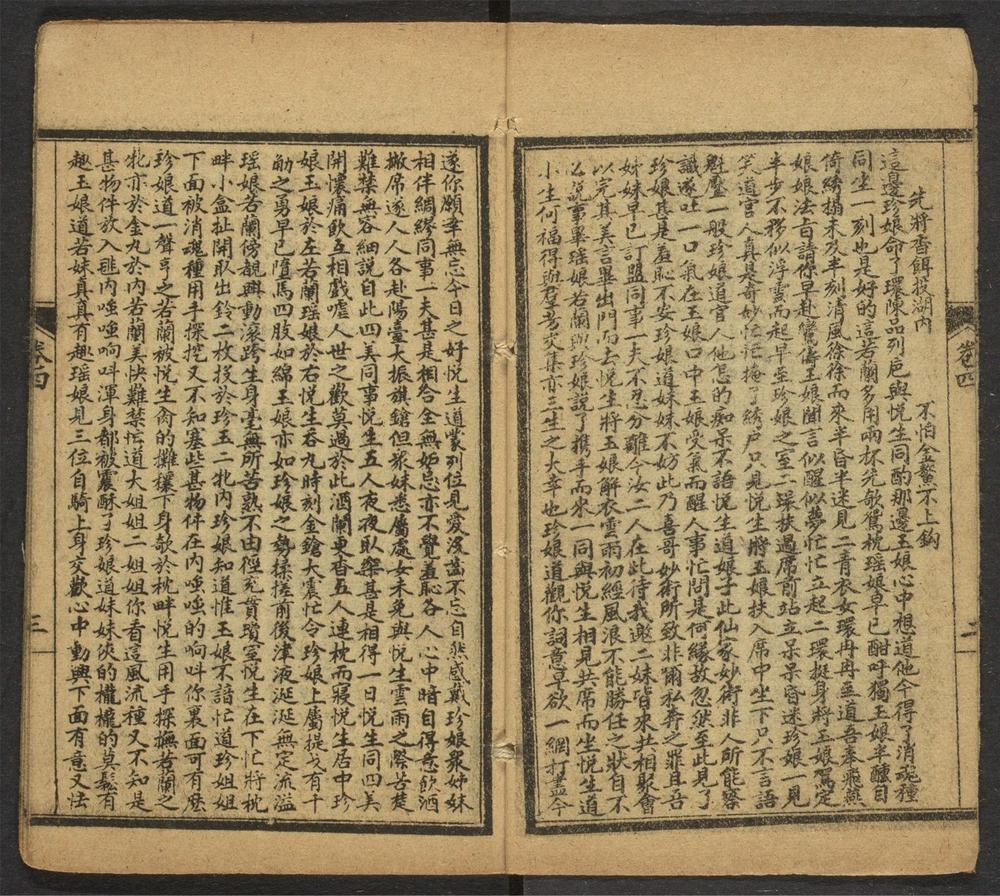 先將香餌投湖內　不怕金鰲不上鈎
這邊珍娘命丫環陳品列卮與悅生同酌那邊玉娘心中想道他今得了消魂種
同坐一刻也是好的這若蘭多用兩杯先欹鴛枕瑶娘早已酣呼獨玉娘半醺自
倚綉榻未及半刻清風徐徐而來半昏半迷見二青衣女環冉冉並道吾奉飛燕
娘娘法旨請你早赴鸞儔玉娘聞言似醒似夢忙忙立起二環挺身將玉娘駕定
半步不移似浮雲而起早至珍娘之室二環扶過席前站立呆呆昏迷珍娘一見
笑道官人真是奇妙忙忙掩了綉戶只見悅生將玉娘扶入席中坐下只不言語
魁魘一般珍娘道官人他怎的痴呆不語悅生道娘子此仙家妙術非人所能
識遂吐一口氣在玉娘口中玉娘受氣而醒人事忙問是何緣故忽然至此見了
珍娘甚是羞恥不安珍娘道妹妹不妨此乃喜哥妙術所致非爾私奔之罪且吾
姊妹早已訂盟同事一夫不忍分離今汝二人在此待我邀二妹皆來共相聚會
以完其美言畢出門而去悅生將玉娘解衣雲雨初經風浪不能勝任之狀自不
必說事畢瑶娘若蘭與珍娘說了携手而來一同與悅生相見共席而坐悅生道
小生何福得與君芳交集亦三生之大幸也珍娘道觀你詞意早欲一網打盡今
遂你願幸無忘今日之好悅生道蒙列位見愛沒齒不忘自然感戴珍娘衆姊妹
相伴綢繆同事一夫甚是相合全無妬忌亦不覺羞恥各人心中暗自得意飲酒
撤席遂人人各赴陽臺大振旗鎗但衆妹悉屬處女未免與悅生雲雨之際苦楚
難禁無容細說自此四美同事悅生五人夜夜臥榻甚是相得一日悅生同四美
開懷痛飲互相戲嘘人世之歡莫過於此酒闌更香五人連枕而寢悅生居中珍
娘玉娘於左若蘭瑶娘於右悅生吞九時刻金鎗大震忙令珍娘上屬提戈有千
觔之勇早已墮馬四股如綿玉娘亦如珍娘之勢揉搓前後津液涎涎無定流溢
瑶娘若蘭傍觀興動滾跨生身毫無所苦熟不由徑充貫瓊室悅生在下忙將枕
畔小盒扯開取出鈴二枚投於珍玉二牝內珍娘知道惟玉娘不諳忙道珍姐姐
下面被消魂種用手探捏又不知塞些甚物件在內唾唾的响叫你裏面可有麽
珍娘道一聲亨之若蘭被悅生肏的攤攘下身欹於枕畔悅生用手探撫若蘭之
牝亦於金丸於內若蘭美快難禁忙道大姐姐二姐姐你看這風流種又不知是
甚物件放入𨳒內唾唾响叫渾身都被震酥了珍娘道妹妹俠的櫳櫳的莫鬆有
趣玉娘道若妹真真有趣瑶娘見三位自騎上身交歡心中動興下面有意又怯
卷四
二
卷四
三